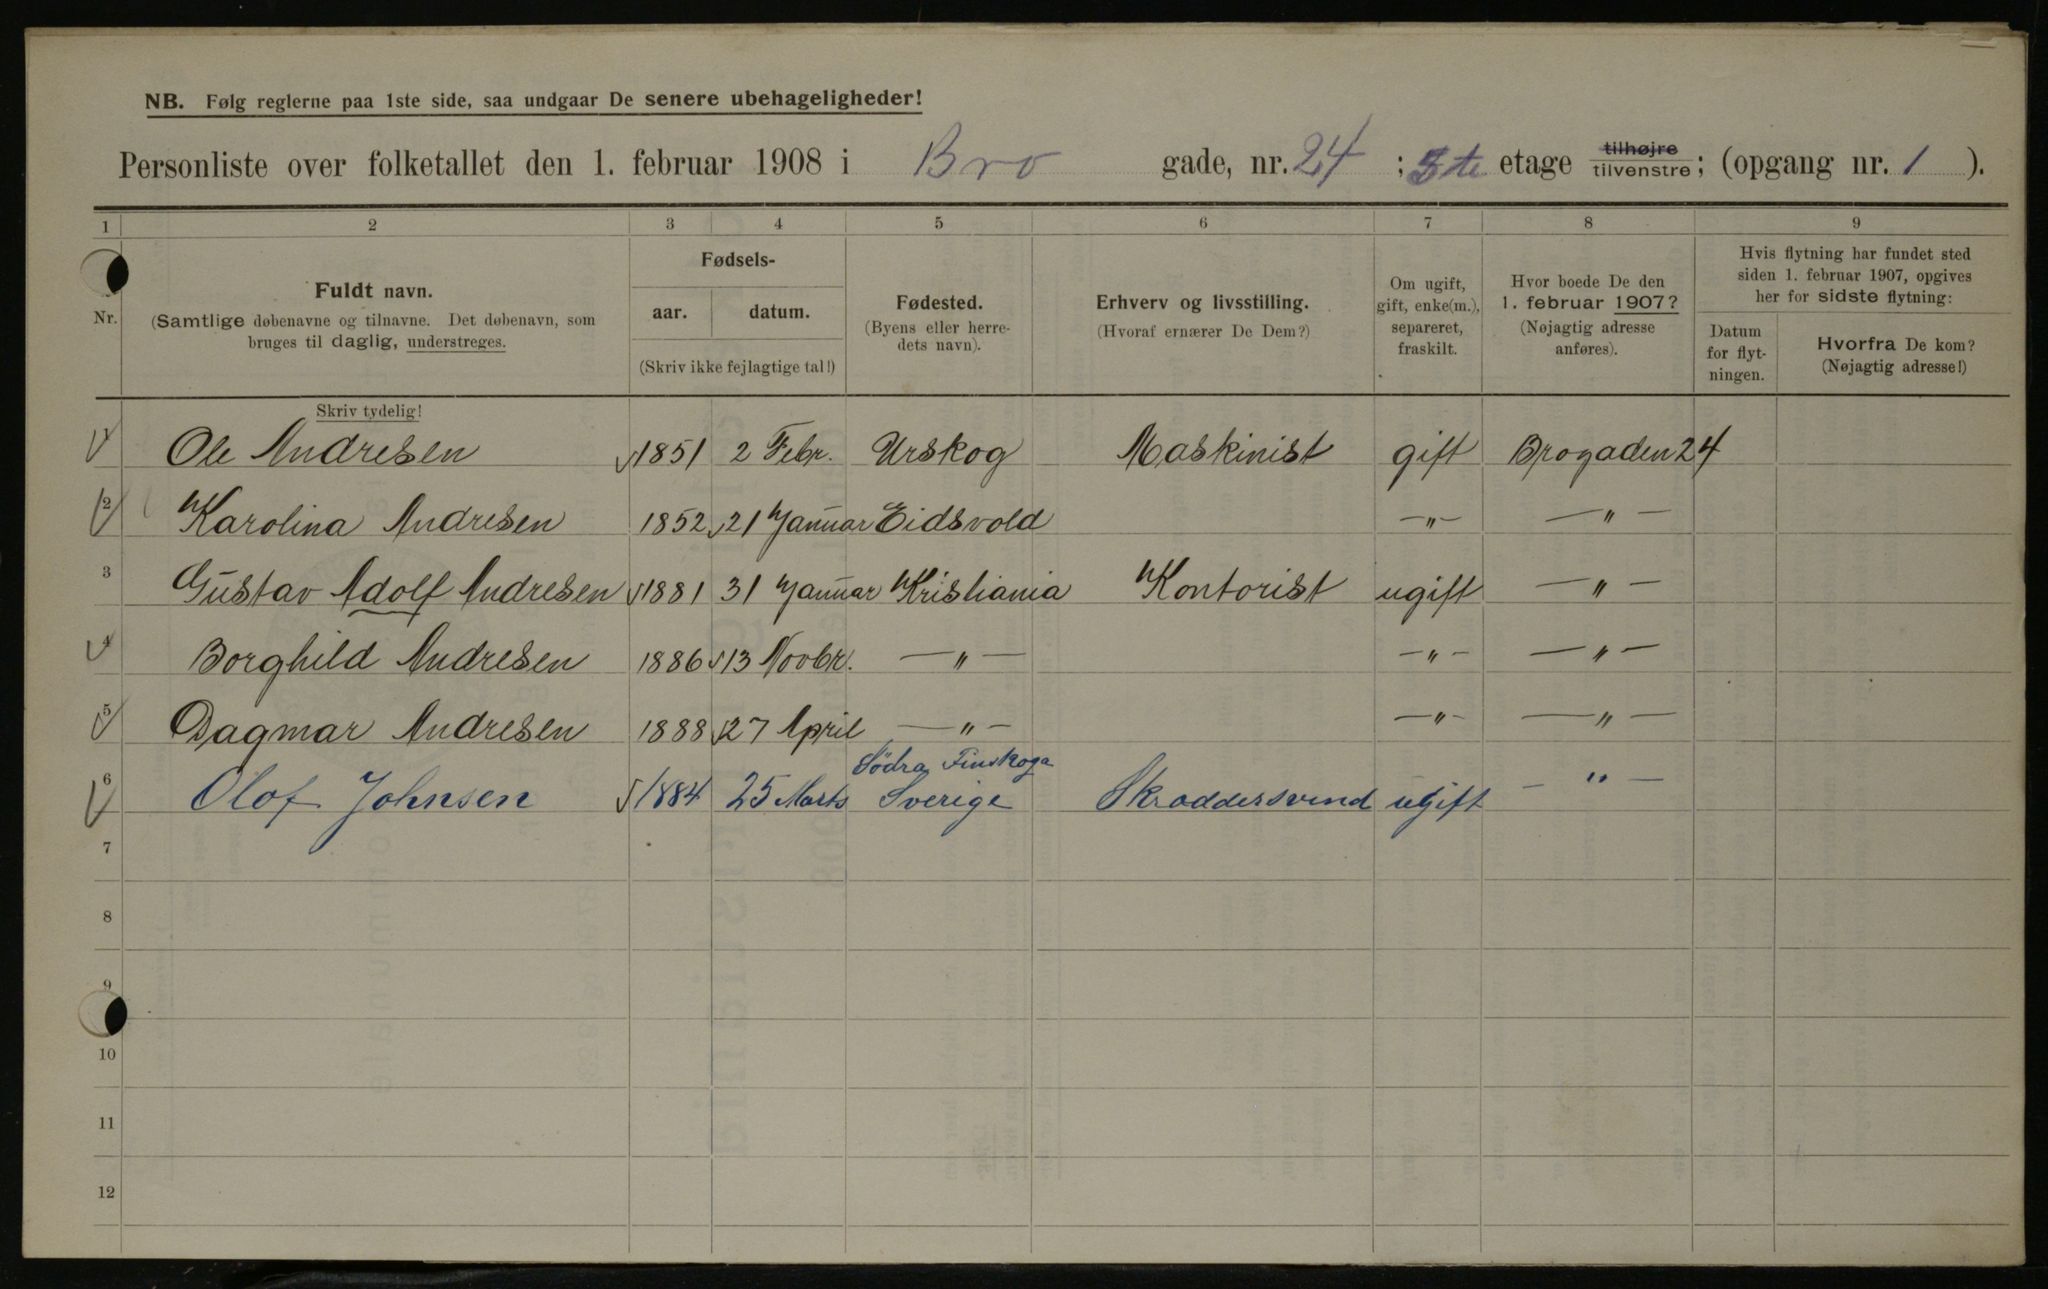 NB. Følg reglerne paa 1ste side, saa undgaar De senere ubehageligheder!
Personliste over folketallet den 1. februar 1908 i Bro gade, nr. 24 ; 5te etage tilhøjre tilvenstre; (opgang nr. 1 ).
1 2 3 4 5 6 7 8 9
Nr.
Fuldt navn.
(Samtlige døbenavne og tilnavne. Det døbenavn, som
bruges til daglig, understreges.
Fødsels-
aar. datum.
(Skriv ikke fejlagtige tal!)
Fødested.
(Byens eller herre-
dets navn).
Erhverv og livsstilling.
(Hvoraf ernærer De Dem?)
Om ugift,
gift, enke(m.),
separeret,
fraskilt.
Hvor boede De den
1. februar 1907?
(Nøjagtig adresse
anføres).
Hvis flytning har fundet sted
siden 1. februar 1907, opgives
her for sidste flytning:
Datum
for flyt-
ningen.
Hvorfra De kom?
(Nøjagtig adresse!)
Skriv tydelig!
1 Ole Andresen 1851 2 Febr. Urskog Maskinist gift Brogaden 24
2 Karolina Andresen 1852 21 Januar Eidsvold —"— —"—
3 Gustav Adolf Andresen 1881 31 Januar Kristiania Kontorist ugift —"—
4 Borghild Andresen 1886 13 Novbr. —"— —"— —"—
5 Dagmar Andresen 1888 27 April —"— —"— —"—
Södra Finskoga
6 Olof Johnsen 1884 25 Marts Sverige Skræddersvend ugift —"—
7
8
9
10
11
12